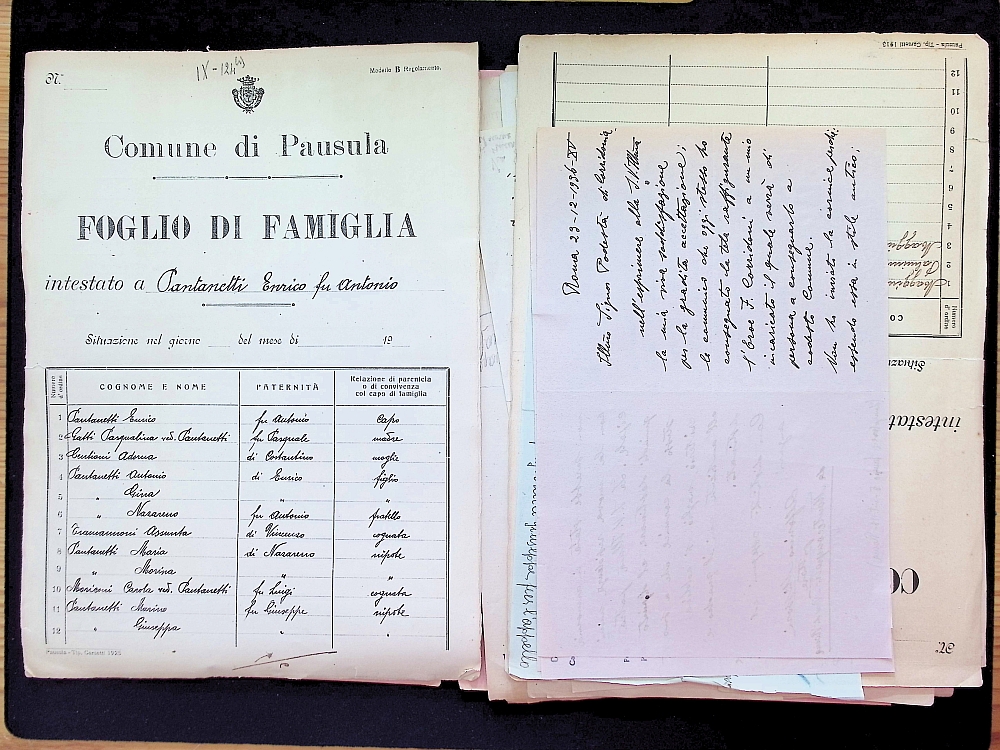 N.°
IX - 124
Modello B Regolamento.
Comune di Pausula
FOGLIO DI FAMIGLIA
intestato a Pantanetti Enrico fu Antonio
Situazione nel giorno del mese di 19
Numero d'ordine COGNOME E NOME PATERNITÀ Relazione di parentela o di convivenza col capo di famiglia
1 Pantanetti Enrico fu Antonio capo
2 Gatti Pasqualina ved. Pantanetti fu Pasquale madre
3 Centioni Aderna di Costantino moglie
4 Pantanetti Antonio di Enrico figlio
5 " Gina " "
6 " Nazareno fu Antonio fratello
7 Tramannoni Assunta di Vincenzo cognata
8 Pantanetti Maria di Nazareno nipote
9 " Marina " "
10 Moriconi Carola ved. Pantanetti fu Luigi cognata
11 Pantanetti Marino fu Giuseppe nipote
12 " Giuseppa " "
Pausula - Tip. Carnetti 1925
Roma 23-12-1936-XV
Ill/mo Signor Podestà di Corridonia
nell'esprimere alla S. V. Ill/ma
la mia viva soddisfazione
per la gradita accettazione;
le comunico che oggi stesso ho
consegnato la tela raffigurante
l'Eroe F. Corridoni a un mio
incaricato il quale verrà di
persona a consegnarlo a
codesto Comune.
Non ho inviato la cornice, poiché
essendo essa in stile antico;
Pausula - Tip. Carnetti 1913
12
11
10
9
8
7
6
5
4
3
2
1
Numero d'ordine
CO
Situazi
intestat
CO
N.°
Giuseppe per l'appello